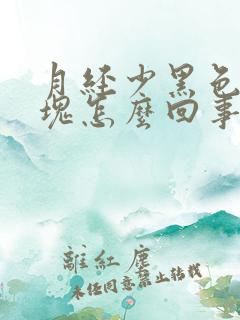 月経少黑色
塊怎麼回事
離紅塵
未經同意禁止轉載